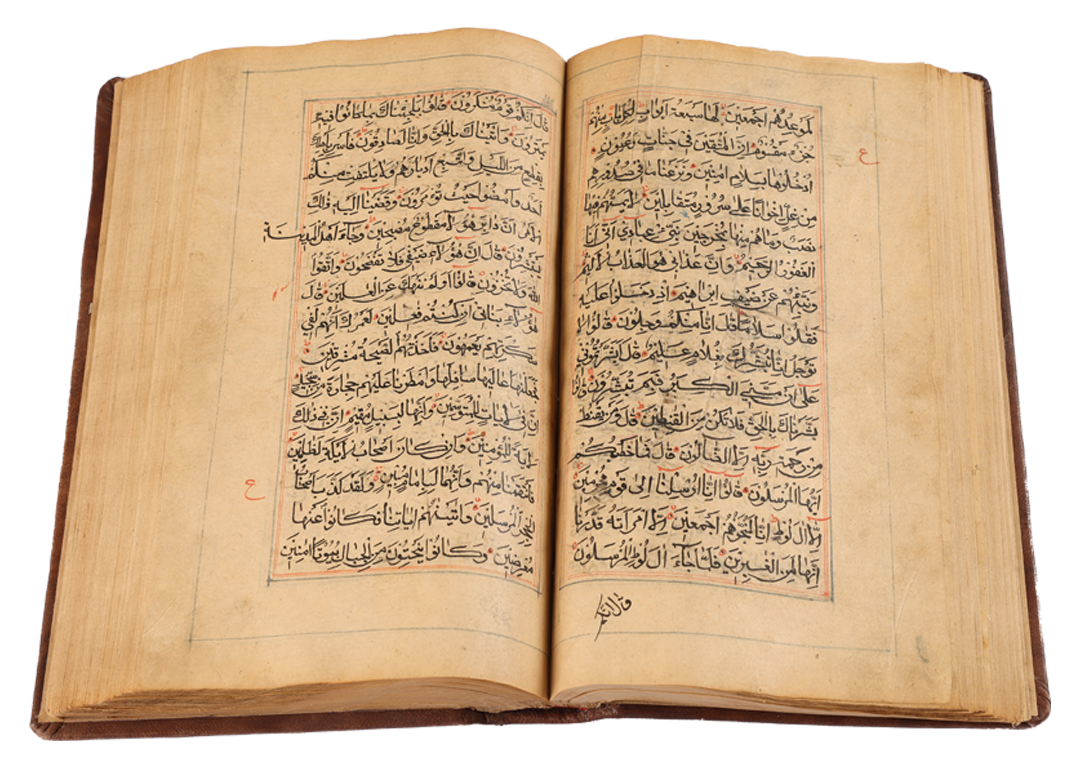 لموعدهم اجمعين لها سبعة ابواب لكل باب منهم
جزء مقسوم ان المتقين في جنات وعيون
ع
ادخلوها بسلام امنين ونزعنا ما في صدورهم
من غل اخوانا على سرر متقابلين لا يمسهم فيها
نصب وما هم منها بمخرجين نبئ عبادي اني انا
الغفور الرحيم وان عذابي هو العذاب الاليم
ونبئهم عن ضيف ابراهيم اذ دخلوا عليه
فقالوا سلاما قال انا منكم وجلون قالوا لا
توجل انا نبشرك بغلام عليم قال ابشرتموني
على ان مسني الكبر فبم تبشرون قالوا
بشرناك بالحق فلا تكن من القنطين قال ومن يقنط
من رحمة ربه الا الضالون قال فما خطبكم
ايها المرسلون قالوا انا ارسلنا الى قوم مجرمين
الا ال لوط انا لمنجوهم اجمعين الا امراته قدرنا
انها لمن الغبرين فلما جاء ال لوط المرسلون
قال انكم
قال انكم قوم منكرون قالوا بل جئناك بما كانوا فيه
يمترون واتيناك بالحق وانا لصادقون فاسر باهلك
بقطع من الليل واتبع ادبارهم ولا يلتفت منكم
احد وامضوا حيث تؤمرون وقضينا اليه ذلك
الامر ان دابر هؤلاء مقطوع مصبحين وجاء اهل المدينة
يستبشرون قال ان هؤلاء ضيفي فلا تفضحون واتقوا
الله ولا تخزون قالوا اولم ننهك عن العلمين قال
هؤلاء بناتي ان كنتم فعلين لعمرك انهم لفي
سكرتهم يعمهون فاخذتهم الصيحة مشرقين
فجعلنا عاليها سافلها وامطرنا عليهم حجارة من سجيل
ان في ذلك لايات للمتوسمين وانها لبسبيل مقيم ان في ذلك
لاية للمؤمنين وان كان اصحاب الايكة لظلمين
فانتقمنا منهم وانهما لبامام مبين ولقد كذب اصحاب
ع
الحجر المرسلين واتينهم اياتنا فكانوا عنها
معرضين وكانوا ينحتون من الجبال بيوتا امنين